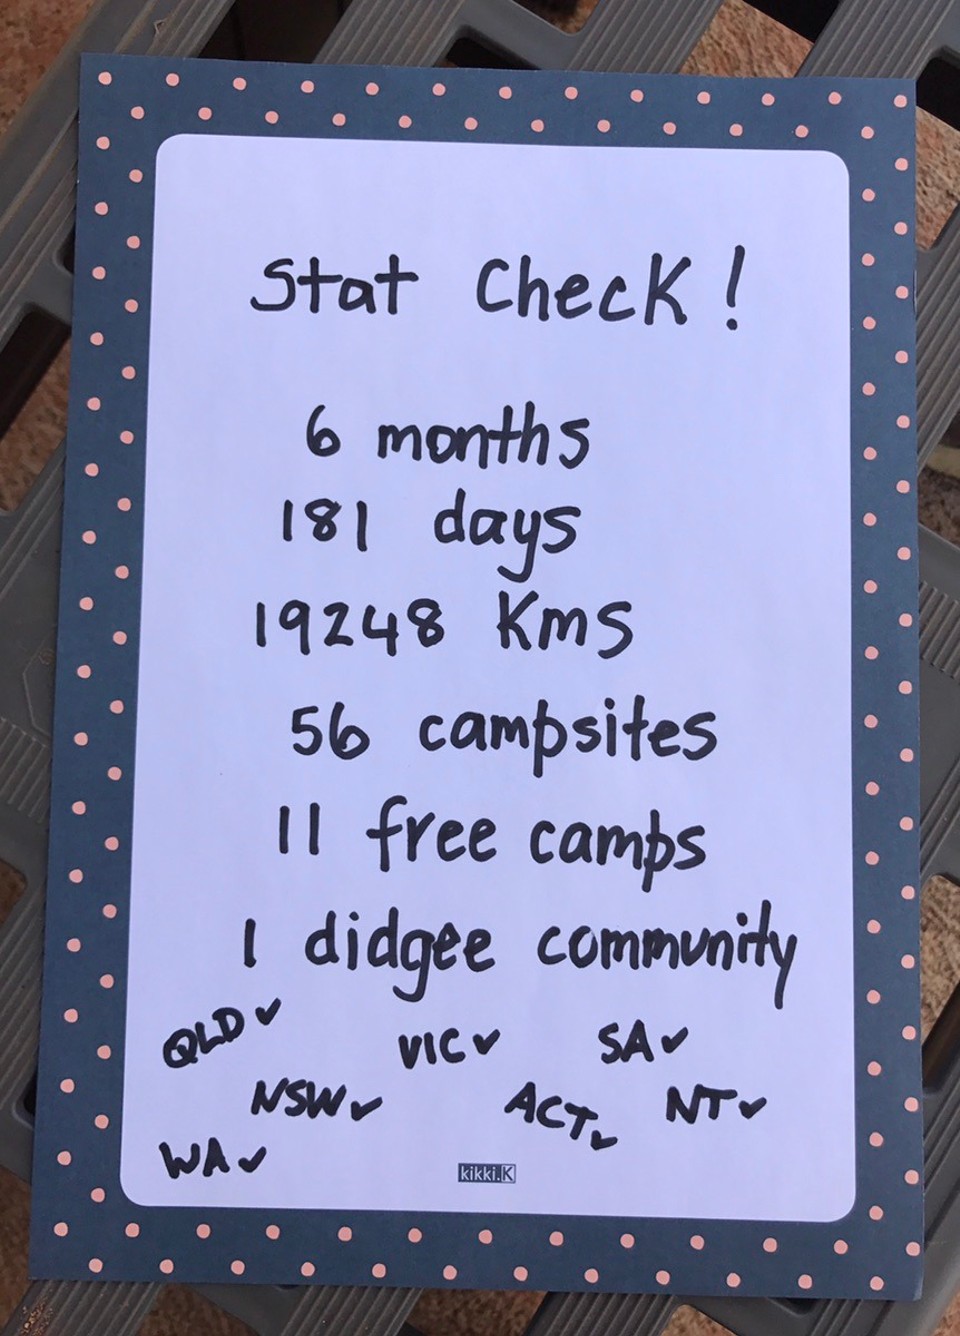 Stat Check!
6 months
181 days
19248 Kms
56 campsites
11 free camps
1 didgee community
QLD✓ VIC✓ SA✓
NSW✓ ACT✓ NT✓
WA✓
kikki.K